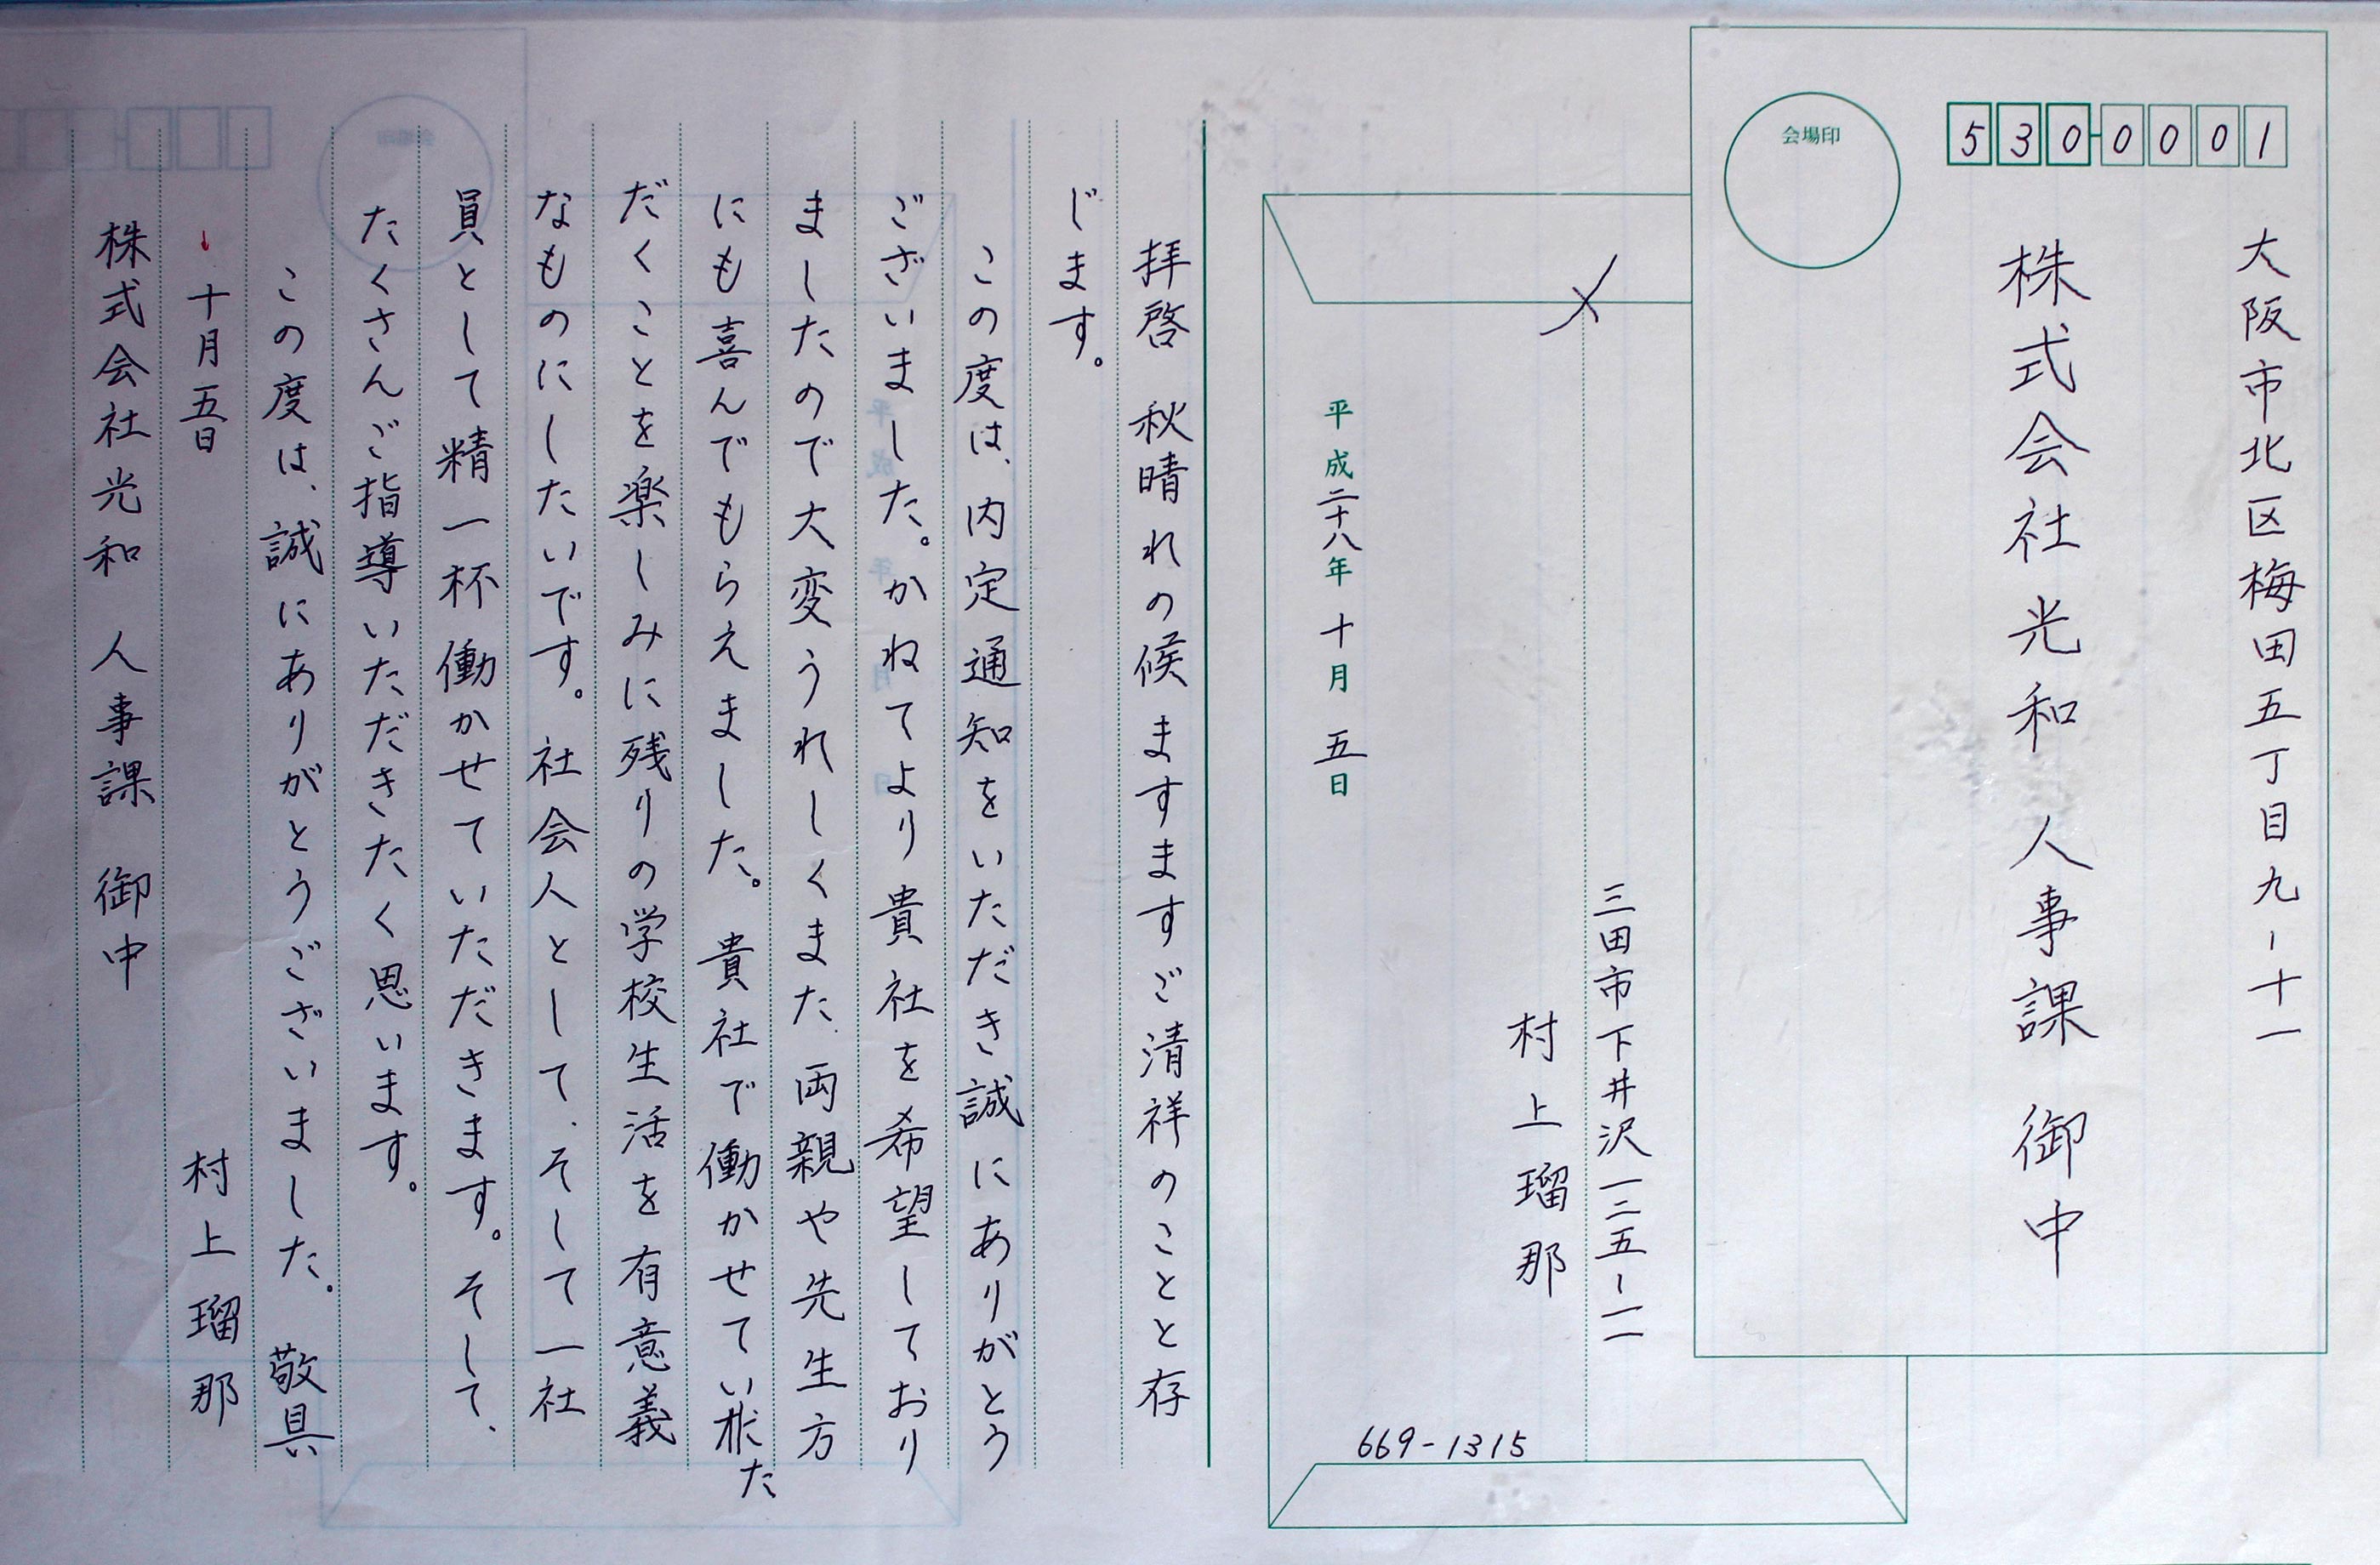 530-0001
会場印
大阪市北区梅田五丁目九-十一
株式会社光和 人事課 御中
三田市下井沢一二五-一一
村上瑠那
平成二十八年十月五日
669-1315
拝啓 秋晴れの候ますますご清祥のことと存
じます。
この度は、内定通知をいただき誠にありがとう
ございました。かねてより貴社を希望しており
ましたので大変うれしくまた、両親や先生方
にも喜んでもらえました。貴社で働かせていた
だくことを楽しみに残りの学校生活を有意義
なものにしたいです。社会人として、そして一社
員として精一杯働かせていただきます。そして、
たくさんご指導いただきたく思います。
この度は、誠にありがとうございました。 敬具
十月五日 村上瑠那
株式会社光和 人事課 御中